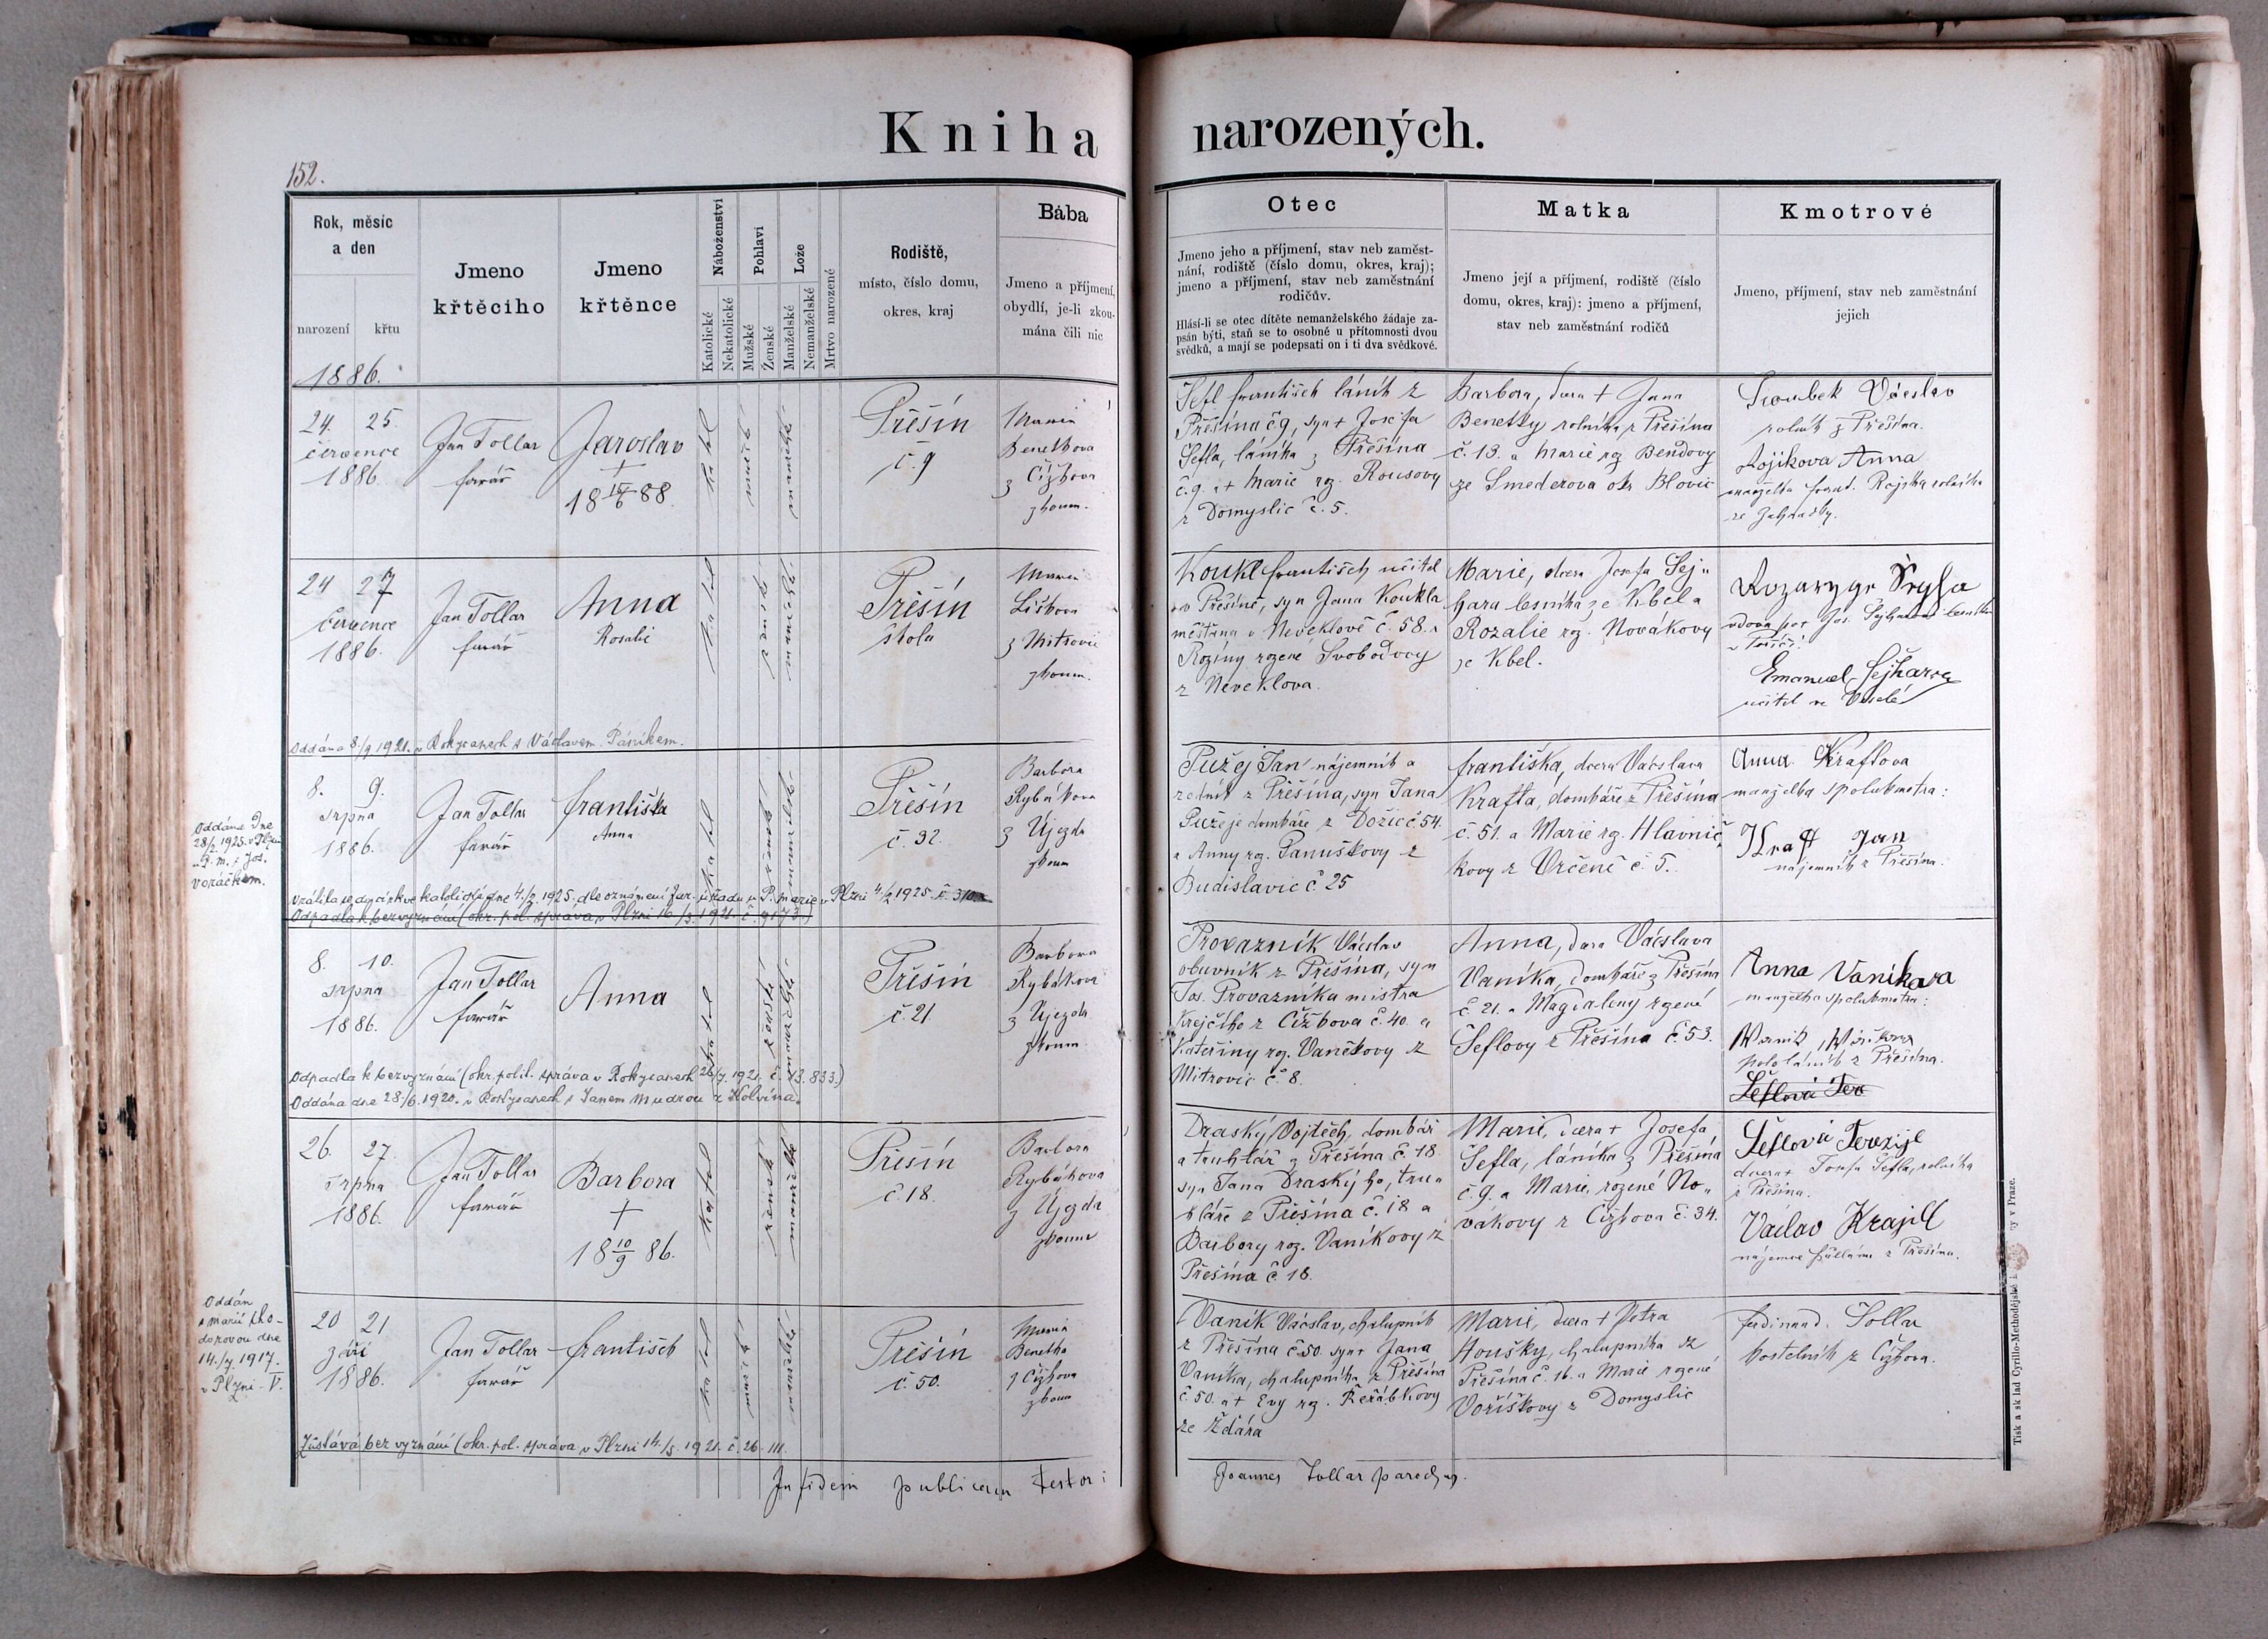 Kniha narozených.
152.
Rok, měsíc
a den
narození křtu
1886.
Jmeno
křtěcího
Jmeno
křtěnce
Náboženství
Katolické
Nekatolické
Pohlaví
Mužské
Ženské
Lože
Manželské
Nemanželské
Mrtvo narozené
Rodiště,
místo, číslo domu,
okres, kraj
Bába
Jmeno a příjmení,
obydlí, je-li zkou-
mána čili nic
Otec
Jmeno jeho a příjmení, stav neb zaměst-
nání, rodiště (číslo domu, okres, kraj);
jmeno a příjmení, stav neb zaměstnání
rodičův.
Hlásí-li se otec dítěte nemanželského žádaje za-
psán býti, staň se to osobně u přítomnosti dvou
svědků, a mají se podepsati on i ti dva svědkové.
Matka
Jmeno její a příjmení, rodiště (číslo
domu, okres, kraj): jmeno a příjmení,
stav neb zaměstnání rodičů
Kmotrové
Jmeno, příjmení, stav neb zaměstnání
jejich
24. 25.
července
1886.
Jan Tollar
farář
Jaroslav
+
18 15/6 88.
Přešín
č. 9
Marie
Benetkova
z Čížkova
zkoum.
Šefl František láník z
Přešína č 9, syn + Josefa
Šefla, láníka z Přešína
č. 9. a + Marie roz. Rousovy
z Domyslic č. 5.
Barbora, dcera + Jana
Benetky rolníka z Přešína
č. 13. a Marie roz Bendovy
ze Smederova okr Blovic
Soubek Václav
rolník z Přešína.
Rojikova Anna
manželka Frant. Rojíka rolníka
ze Zahrádky.
24 27
července
1886.
Jan Tollar
farář
Anna
Rosalie
Přešín
škola
Marie
Liškova
z Mitrovic
zkoum.
Koukl František učitel
v Přešíně, syn Jana Koukla
měšťana v Neveklově č. 58. a
Roziny rozené Svobodovy
z Neveklova.
Marie, dcera Josefa Sej-
hara lesníka ze Kbela
Rozalie roz. Novákovy
ze Kbel.
Emanuel Sejhar
učitel ve
Oddána 8./9 1921. v Rokycanech s Václavem Páníkem.
8. 9.
srpna
1886.
Jan Tollar
farář
Františka
Anna
Přešín
č. 32.
Barbora
Rybákova
z Újezda
zkoum
Pužej Jan nájemník a
z Přešína, syn Jana
Pužeje domkáře z Dožic č 54.
a Anny roz. Janušhovy z
Budislavic č 25
Františka, dcera Václava
Krafta, domkáře z Přešína
č. 51. a Marie roz. Hlavnič-
kovy z Vrčeně č. 5.
Anna Kraftova
manželka spolukmotra:
Kraft Jan
nájemník z Přešína.
Oddána dne
28/2 1925. v Plzni
u P. m. s Jos.
Voráčkem.
Vrátila se do církve katolické dne 4./2. 1925. dle oznámení far. úřadu u P. Marie v Plzni 4./2 1925. č. 310
Odpadla k bezvyznání (okr. pol. správa v Plzni 16./3. 1921. č. 9173.)
8. 10.
srpna
1886.
Jan Tollar
farář
Anna
Přešín
č. 21.
Barbora
Rybákova
z Újezda
zkoum.
Provazník Václav
obuvník z Přešína, syn
Jos. Provazníka mistra
krejčího z Čížkova č. 40. a
Kateřiny roz. Vaněkovy z
Mitrovic č. 8.
Anna, dcera Václava
Vaníka, domkáře z Přešína
č. 21. a Magdaleny rozené
Šeflovy z Přešína č. 53.
Anna Vaníkova
manželka spolukmotra:
pololáník z Přešína.
Šeflová Ter
Odpadla k bezvyznání (okr. polit. správa v Rokycanech 26/7. 1921. č. 13.833.)
Oddána dne 28./6. 1920. v Rokycanech s Janem Mudrou z Holvína.
26. 27.
srpna
1886.
Jan Tollar
farář
Barbora
+
18 10/9 86.
Přešín
č 18.
Barbora
Rybákova
z Újezda
zkoum
Draský Vojtěch, domkář
a truhlář z Přešína č. 18
syn Jana Draskýho, tru-
hláře z Přešína č. 18 a
Barbory roz. Vaníkovy z
Přešína č. 18.
Marie, dcera + Josefa
Šefla, láníka z Přešína
č. 9. a Marie, rozené No-
vákovy z Čížkova č. 34.
Šeflová Terezije
dcera + Josefa Šefla, rolníka
z Přešína.
Václav Krajll
nájemce z Přešína.
20 21
září
1886.
Jan Tollar
farář
František
Přešín
č. 50.
Marie
Benetka
z Čížkova
zkoum
Vaník Václav, chalupník
z Přešína č 50. syn + Jana
Vaníka, chalupníka z Přešína
č. 50. a + Evy roz. Řeřábkovy
ze Ždára
Marie, dcera + Petra
Houšky, chalupníka z
Přešína č. 16. a Marie rozené
Voříškovy z Domyslic
Ferdinand Tollar
kostelník z Čížkova.
Oddán
s Marií Cho-
dorovou dne
14./7. 1917.
v Plzni - V.
Zůstává bez vyznání (okr. pol. správa v Plzni 14./5. 1921. č. 26.111.
In fidem publicam testor:
Joannes Tollar parochus.